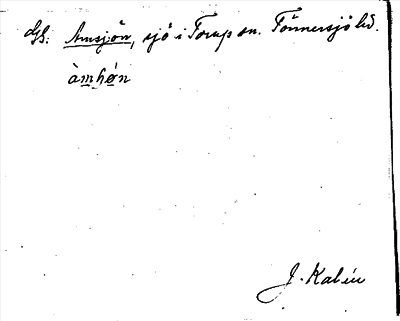 Hs. Amsjön, sjö i Torup sn. Tönnersjö hd.
àmhø̀n
J. Kalén